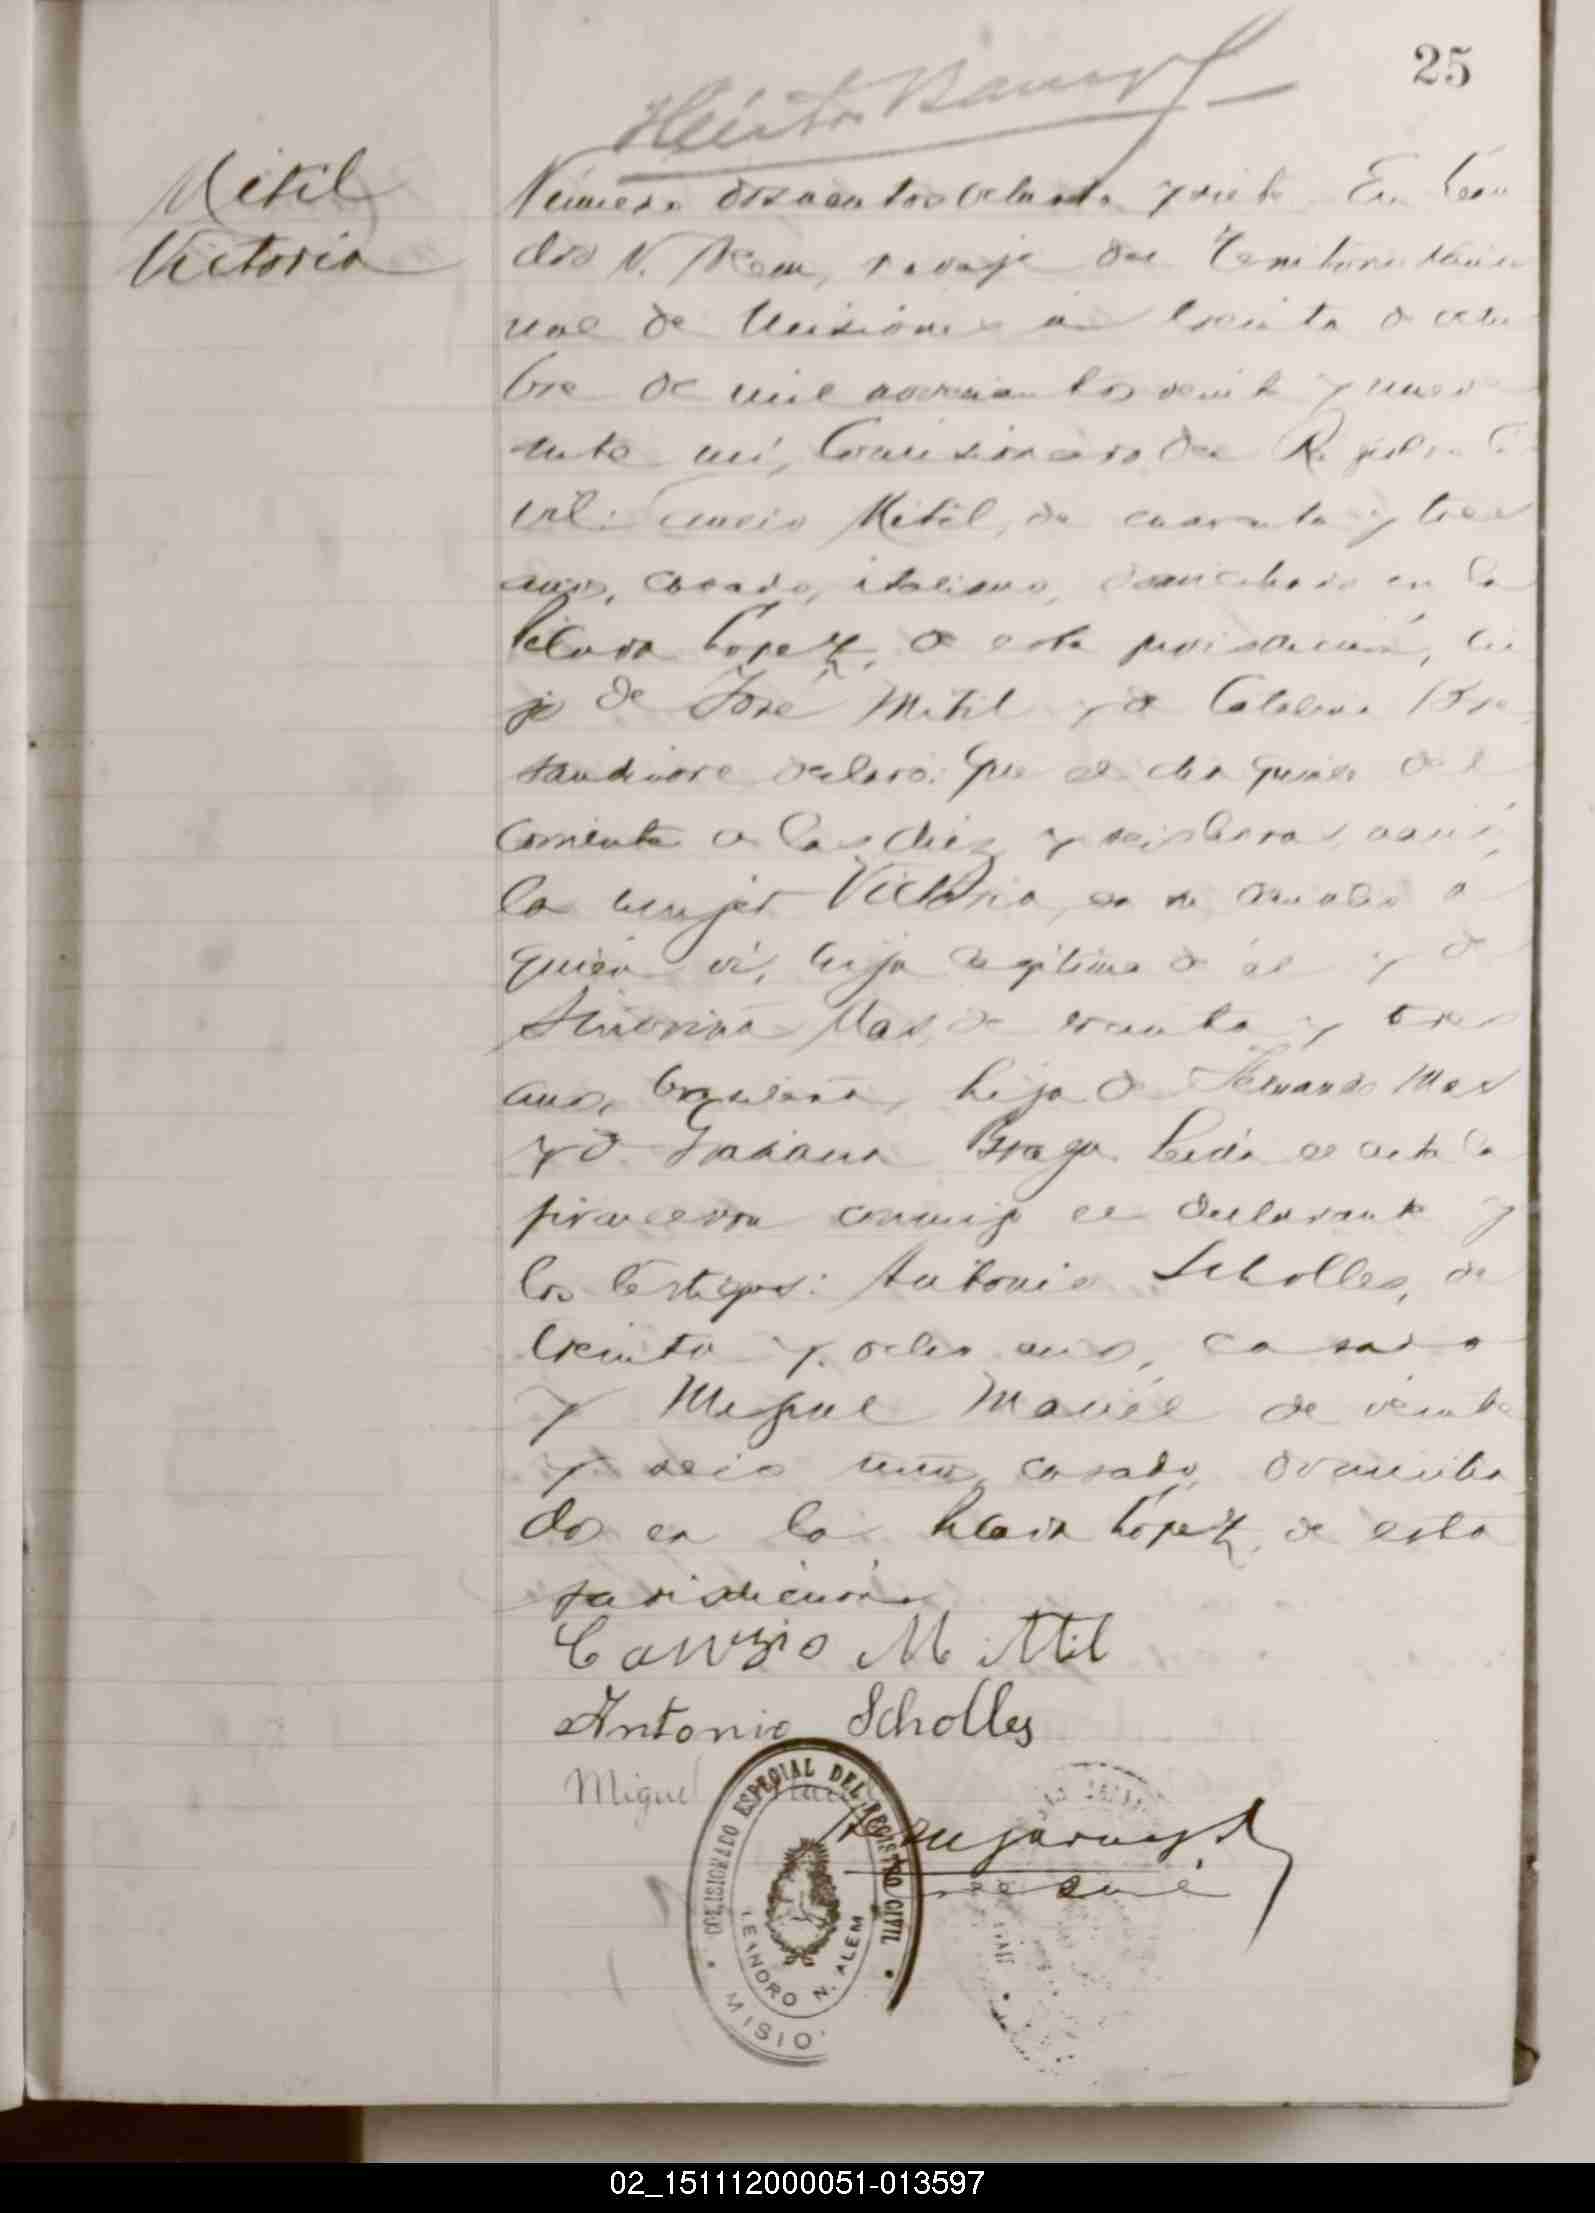 25
Mitil
Victoria
Número doscientos ochenta y siete En Lean
dro N. Alem, paraje del Territorio Nacio
nal de Misiones a treinta de octu
bre de mil novecientos veinte y nueve
ante mí, Comisionado del Registro Ci
vil: Mitil, de cuarenta y tres
años, casado, italiano, domiciliado en la
Picada López, de esta jurisdicción, hi
jo de José Mitil y de Catalina
declaró: Que el día quince del
corriente a las diez y seis horas, nació
la mujer Victoria, en su domicilio a
quien vi, hija legítima de él y de
Mas, de treinta y tres
años, brasilera, hija de Fernando Mas
y de Braga. Leída el acta la
firmaron conmigo el declarante y
los testigos: Antonio Scholles, de
treinta y ocho años, casado
y Miguel Maciel de veinte
y seis años, casado, domicilia
dos en la Picada López, de esta
jurisdicción
Mittil
Antonio Scholles
Miguel
COMISIONADO ESPECIAL DEL REGISTRO CIVIL
LEANDRO N. ALEM
MISIO
02_151112000051-013597